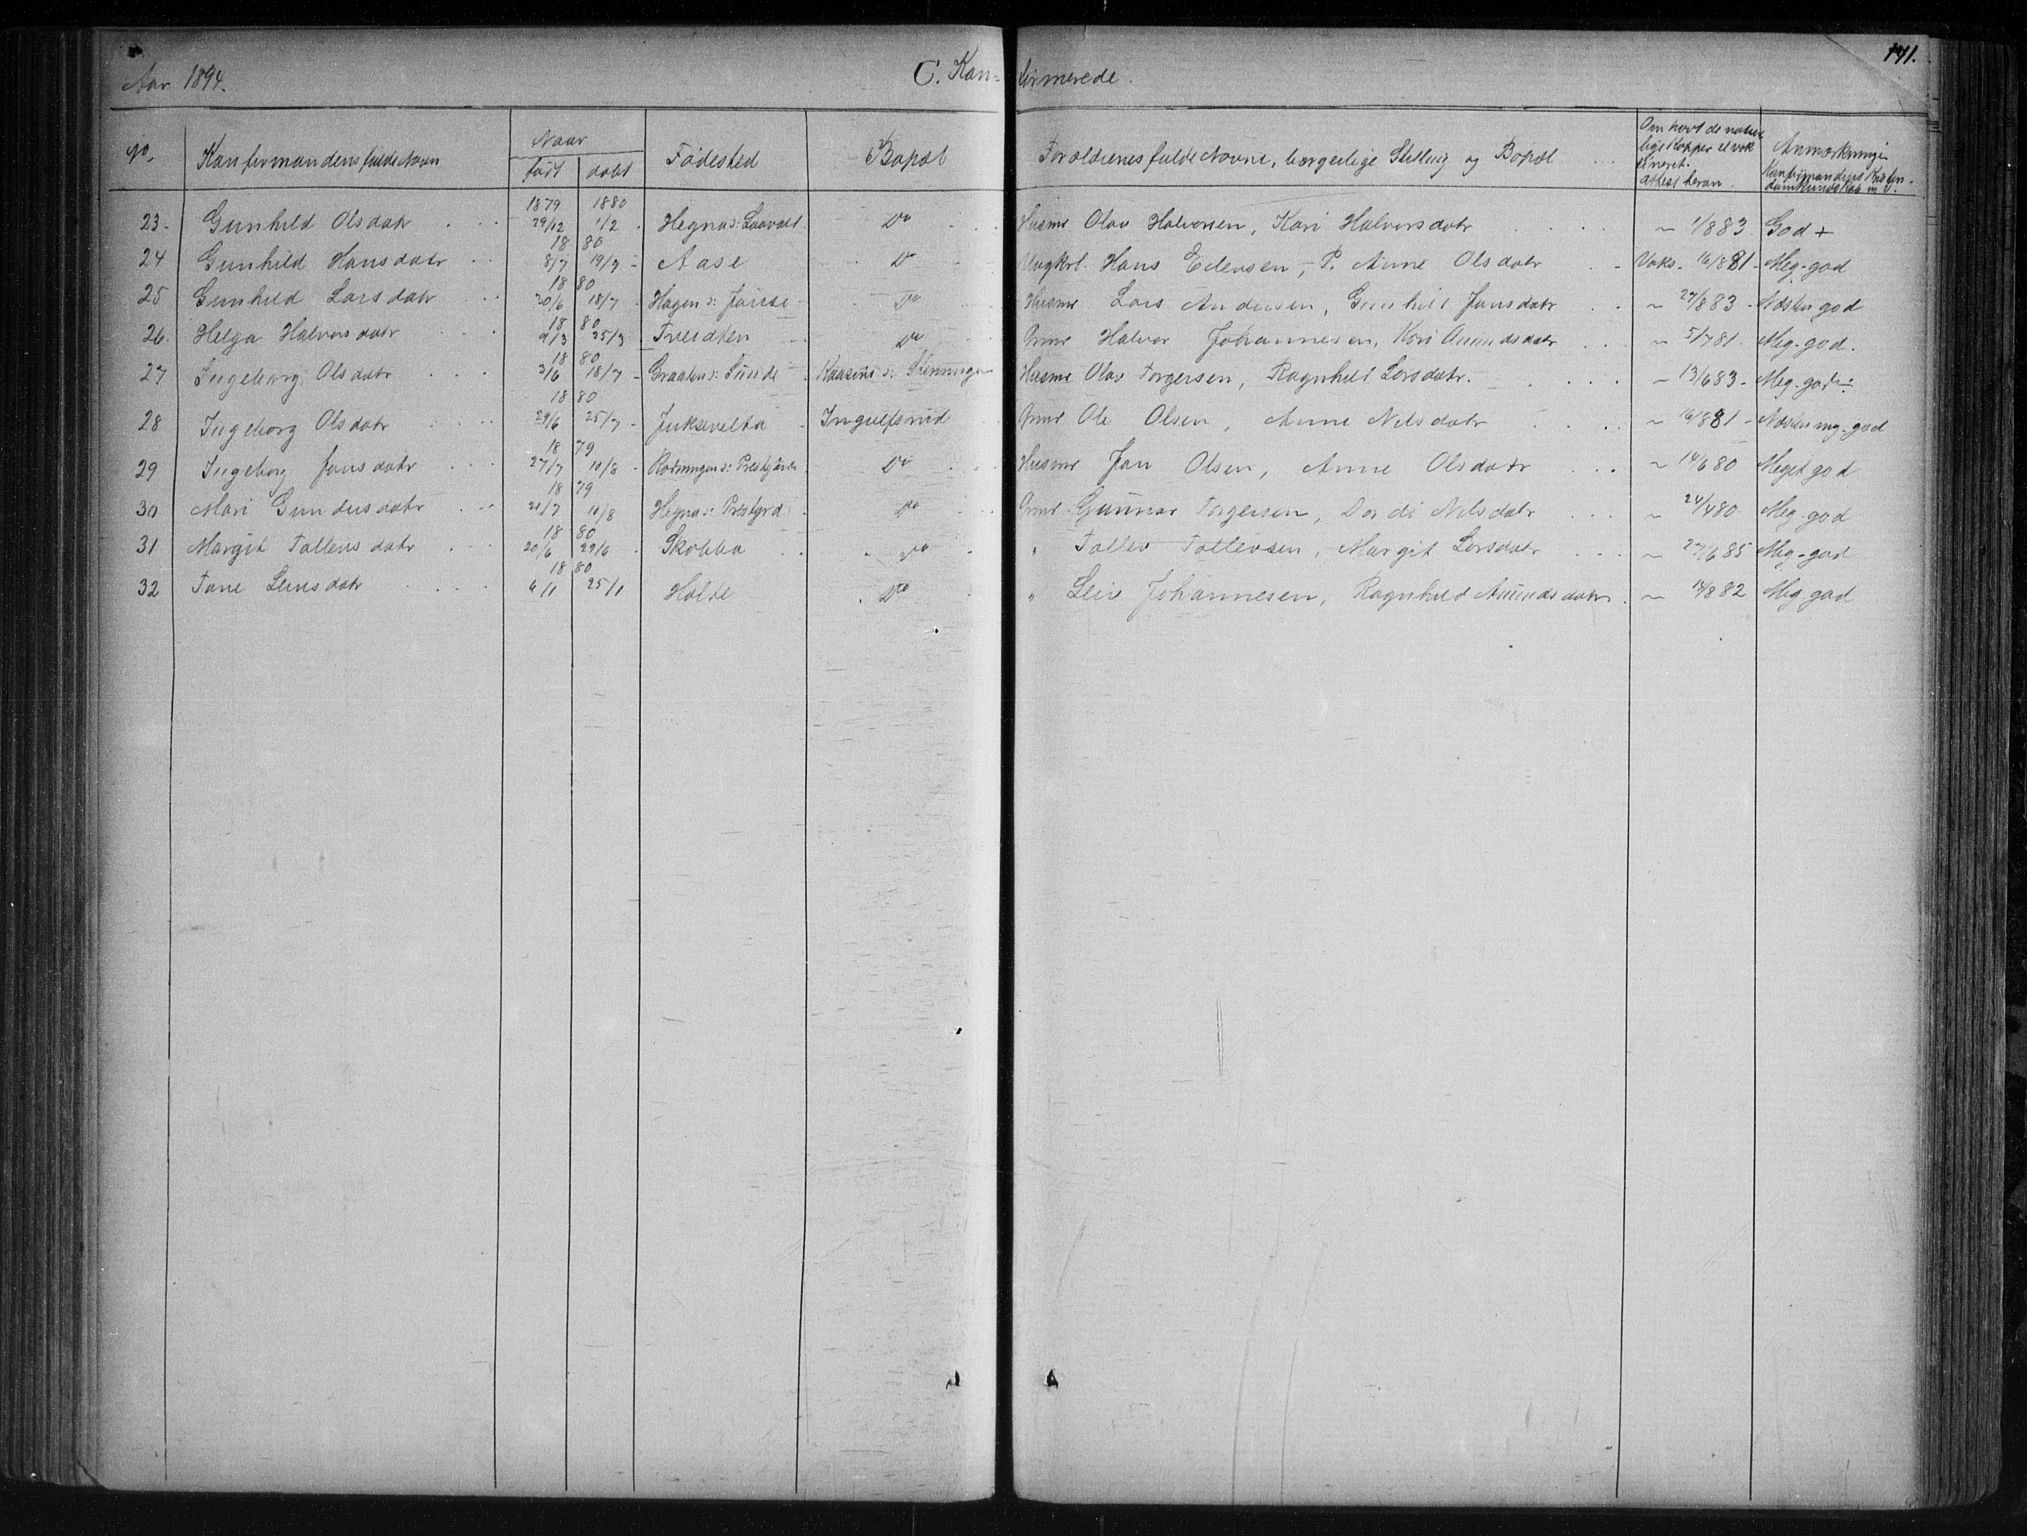 Aar 1894. C. Kon- firmerede. 141.
No. Konfirmandens fulde Navn Naar født døbt Fødested Bopæl Forældrenes fulde Navne, borgerlige Stilling og Bopæl Om havt de naturlige Kopper el vaksineret. Attest herom. Anmærkninger Konfirmandens Kristendomskundskab m. v.
1879 1880
23. Gunhild Olsdatr 29/12 1/2 Hegna s: Laavald Do Husmd Olav Halvorsen, Kari Halvorsdatr ~ 1/883 God +
18 80
24 Gunhild Hansdatr 8/7 19/9 Aase Do Ungkrl. Hans Edensen, P. Anne Olsdatr Vaks. 16/881 Meg. god
18 80
25 Gunhild Larsdatr 20/6 18/7 Hagen s: Do Husmd Lars Andersen, Gunhild Jansdatr ~ 27/883 Næsten god
18 80
26. Helga Halvorsdatr 2/3 25/3 Tveraaen Do Grmd Halvor Johannesen, Kari Amundsdatr ~ 5/781. Meg. god.
18 80
27 Ingeborg Olsdatr 3/6 18/7 Graaten s: Sunde Husmd Olav Torgersen, Ragnhild Larsdatr. ~ 13/683 Meg. god
18 80
28 Ingeborg Olsdatr 29/6 25/7 Juksevelta Ingulfsrud Grmd Ole Olsen, Anne Nilsdatr ~ 16/881 Næsten meg. god
18 79
29 Ingeborg Jansdatr 27/7 10/8 Do Husmd Jan Olsen, Anne Olsdatr ~ 14/680 Meget god
18 79
30 Mari Gundersdatr 21/7 10/8 Hegna s: Prestgrd Do Grmd Gunnar Torgersen, Dordi Nilsdatr ~ 24/480 Meg. god
18 80
31 Margit Tollevsdatr 20/6 29/6 Skobba Do " Tollev Tollevsen, Margit Larsdatr ~ 27/685 Meg. god
18 80
32 Tone Leivsdatr 6/1 25/1 Holte Do " Leiv Johannesen, Ragnhild Amundsdatr ~ 14/882 Meg god